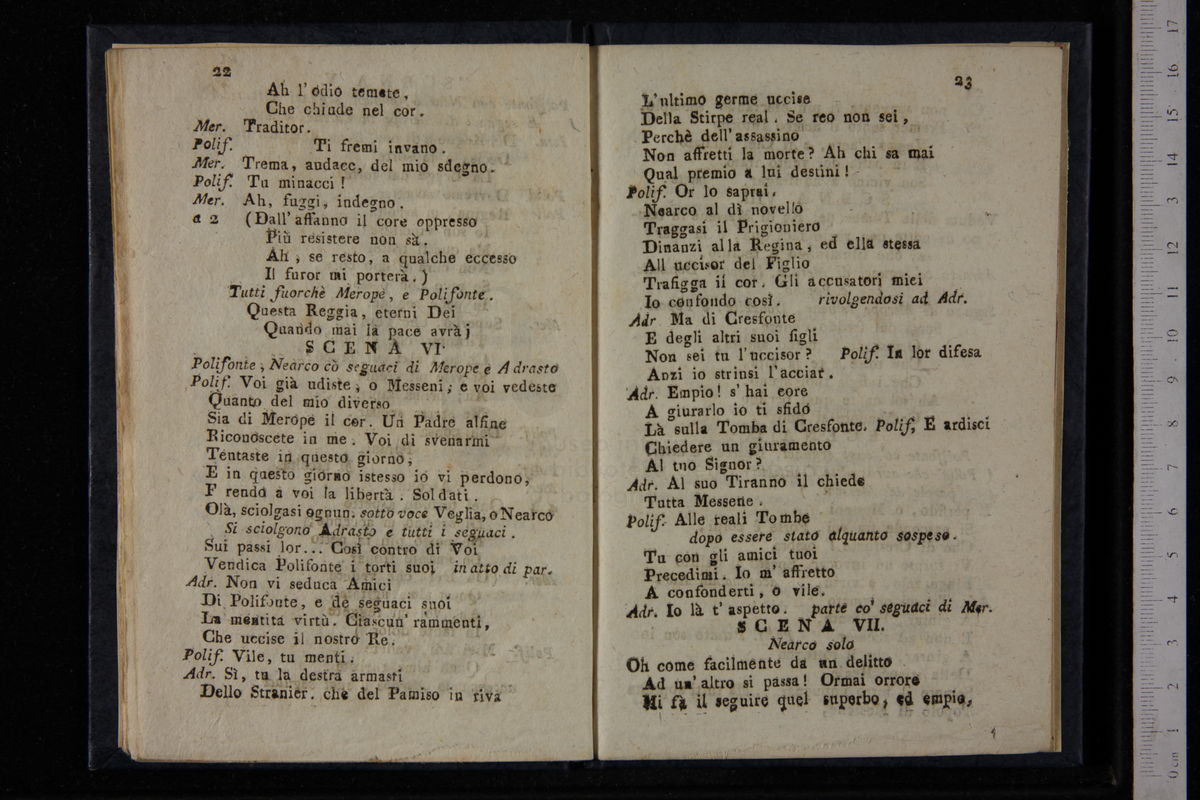 22
Ah l'odio temete,
Che chiude nel cor.
Mer. Traditor.
Polif. Ti fremi invano.
Mer. Trema, audace, del mio sdegno.
Polif. Tu minacci!
Mer. Ah, fuggi, indegno.
a 2 (Dall'affanno il core oppresso
Più resistere non sà.
Ah, se resto, a qualche eccesso
Il furor mi porterà.)
Tutti fuorchè Merope, e Polifonte.
Questa Reggia, eterni Dei
Quando mai la pace avrà;
SCENA VI.
Polifonte, Nearco cò seguaci di Merope e Adrasto
Polif. Voi già udiste, o Messeni; e voi vedeste
Quanto del mio diverso
Sia di Merope il cor. Un Padre alfine
Riconoscete in me. Voi di svenarmi
Tentaste in questo giorno,
E in questo giorno istesso io vi perdono,
E rendo a voi la libertà. Soldati.
Olà, sciolgasi ognun. sotto voce Veglia, o Nearco
Si sciolgono Adrasto e tutti i seguaci.
Sui passi lor... Così contro di Voi
Vendica Polifonte i torti suoi in atto di par.
Adr. Non vi seduca Amici
Di Polifonte, e de seguaci suoi
La mentita virtù. Ciascun' rammenti,
Che uccise il nostro Re.
Polif. Vile, tu menti.
Adr. Sì, tu la destra armasti
Dello Stranier. che del Pamiso in riva
23
L'ultimo germe uccise
Della Stirpe real. Se reo non sei,
Perchè dell'assassino
Non affretti la morte? Ah chi sa mai
Qual premio a lui destini!
Polif. Or lo saprai,
Nearco al dì novello
Traggasi il Prigioniero
Dinanzi alla Regina, ed ella stessa
All uccisor del Figlio
Trafigga il cor. Gli accusatori miei
Io confondo così. rivolgendosi ad Adr.
Adr Ma di Cresfonte
E degli altri suoi figli
Non sei tu l'uccisor? Polif. In lor difesa
Anzi io strinsi l'acciar.
Adr. Empio! s'hai core
A giurarlo io ti sfido
Là sulla Tomba di Cresfonte. Polif, E ardisci
Chiedere un giuramento
Al tuo Signor?
Adr. Al suo Tiranno il chiede
Tutta Messene.
Polif. Alle reali Tombe
dopo essere stato alquanto sospeso.
Tu con gli amici tuoi
Precedimi. Io m'affretto
A confonderti, o vile.
Adr. Io là t'aspetto. parte co' seguaci di Mer.
SCENA VII.
Nearco solo
Oh come facilmente da un delitto
Ad un'altro si passa! Ormai orrore
Mi fà il seguire quel superbo, ed empio,
0 cm 1 2 3 4 5 6 7 8 9 10 11 12 13 14 15 16 17